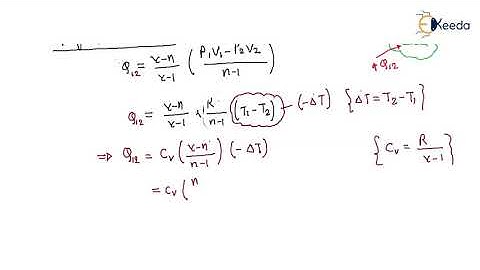 Keeda
Q₁₂ = γ-n/γ-1 ( P₁V₁ - P₂V₂ / n-1 )
Q₁₂
Q₁₂ = γ-n/γ-1 × R/n-1 (T₁-T₂) — (-ΔT) {ΔT = T₂-T₁}
⇒ Q₁₂ = Cv ( γ-n / n-1 ) (-ΔT) { Cv = R / γ-1 }
= Cv ( n